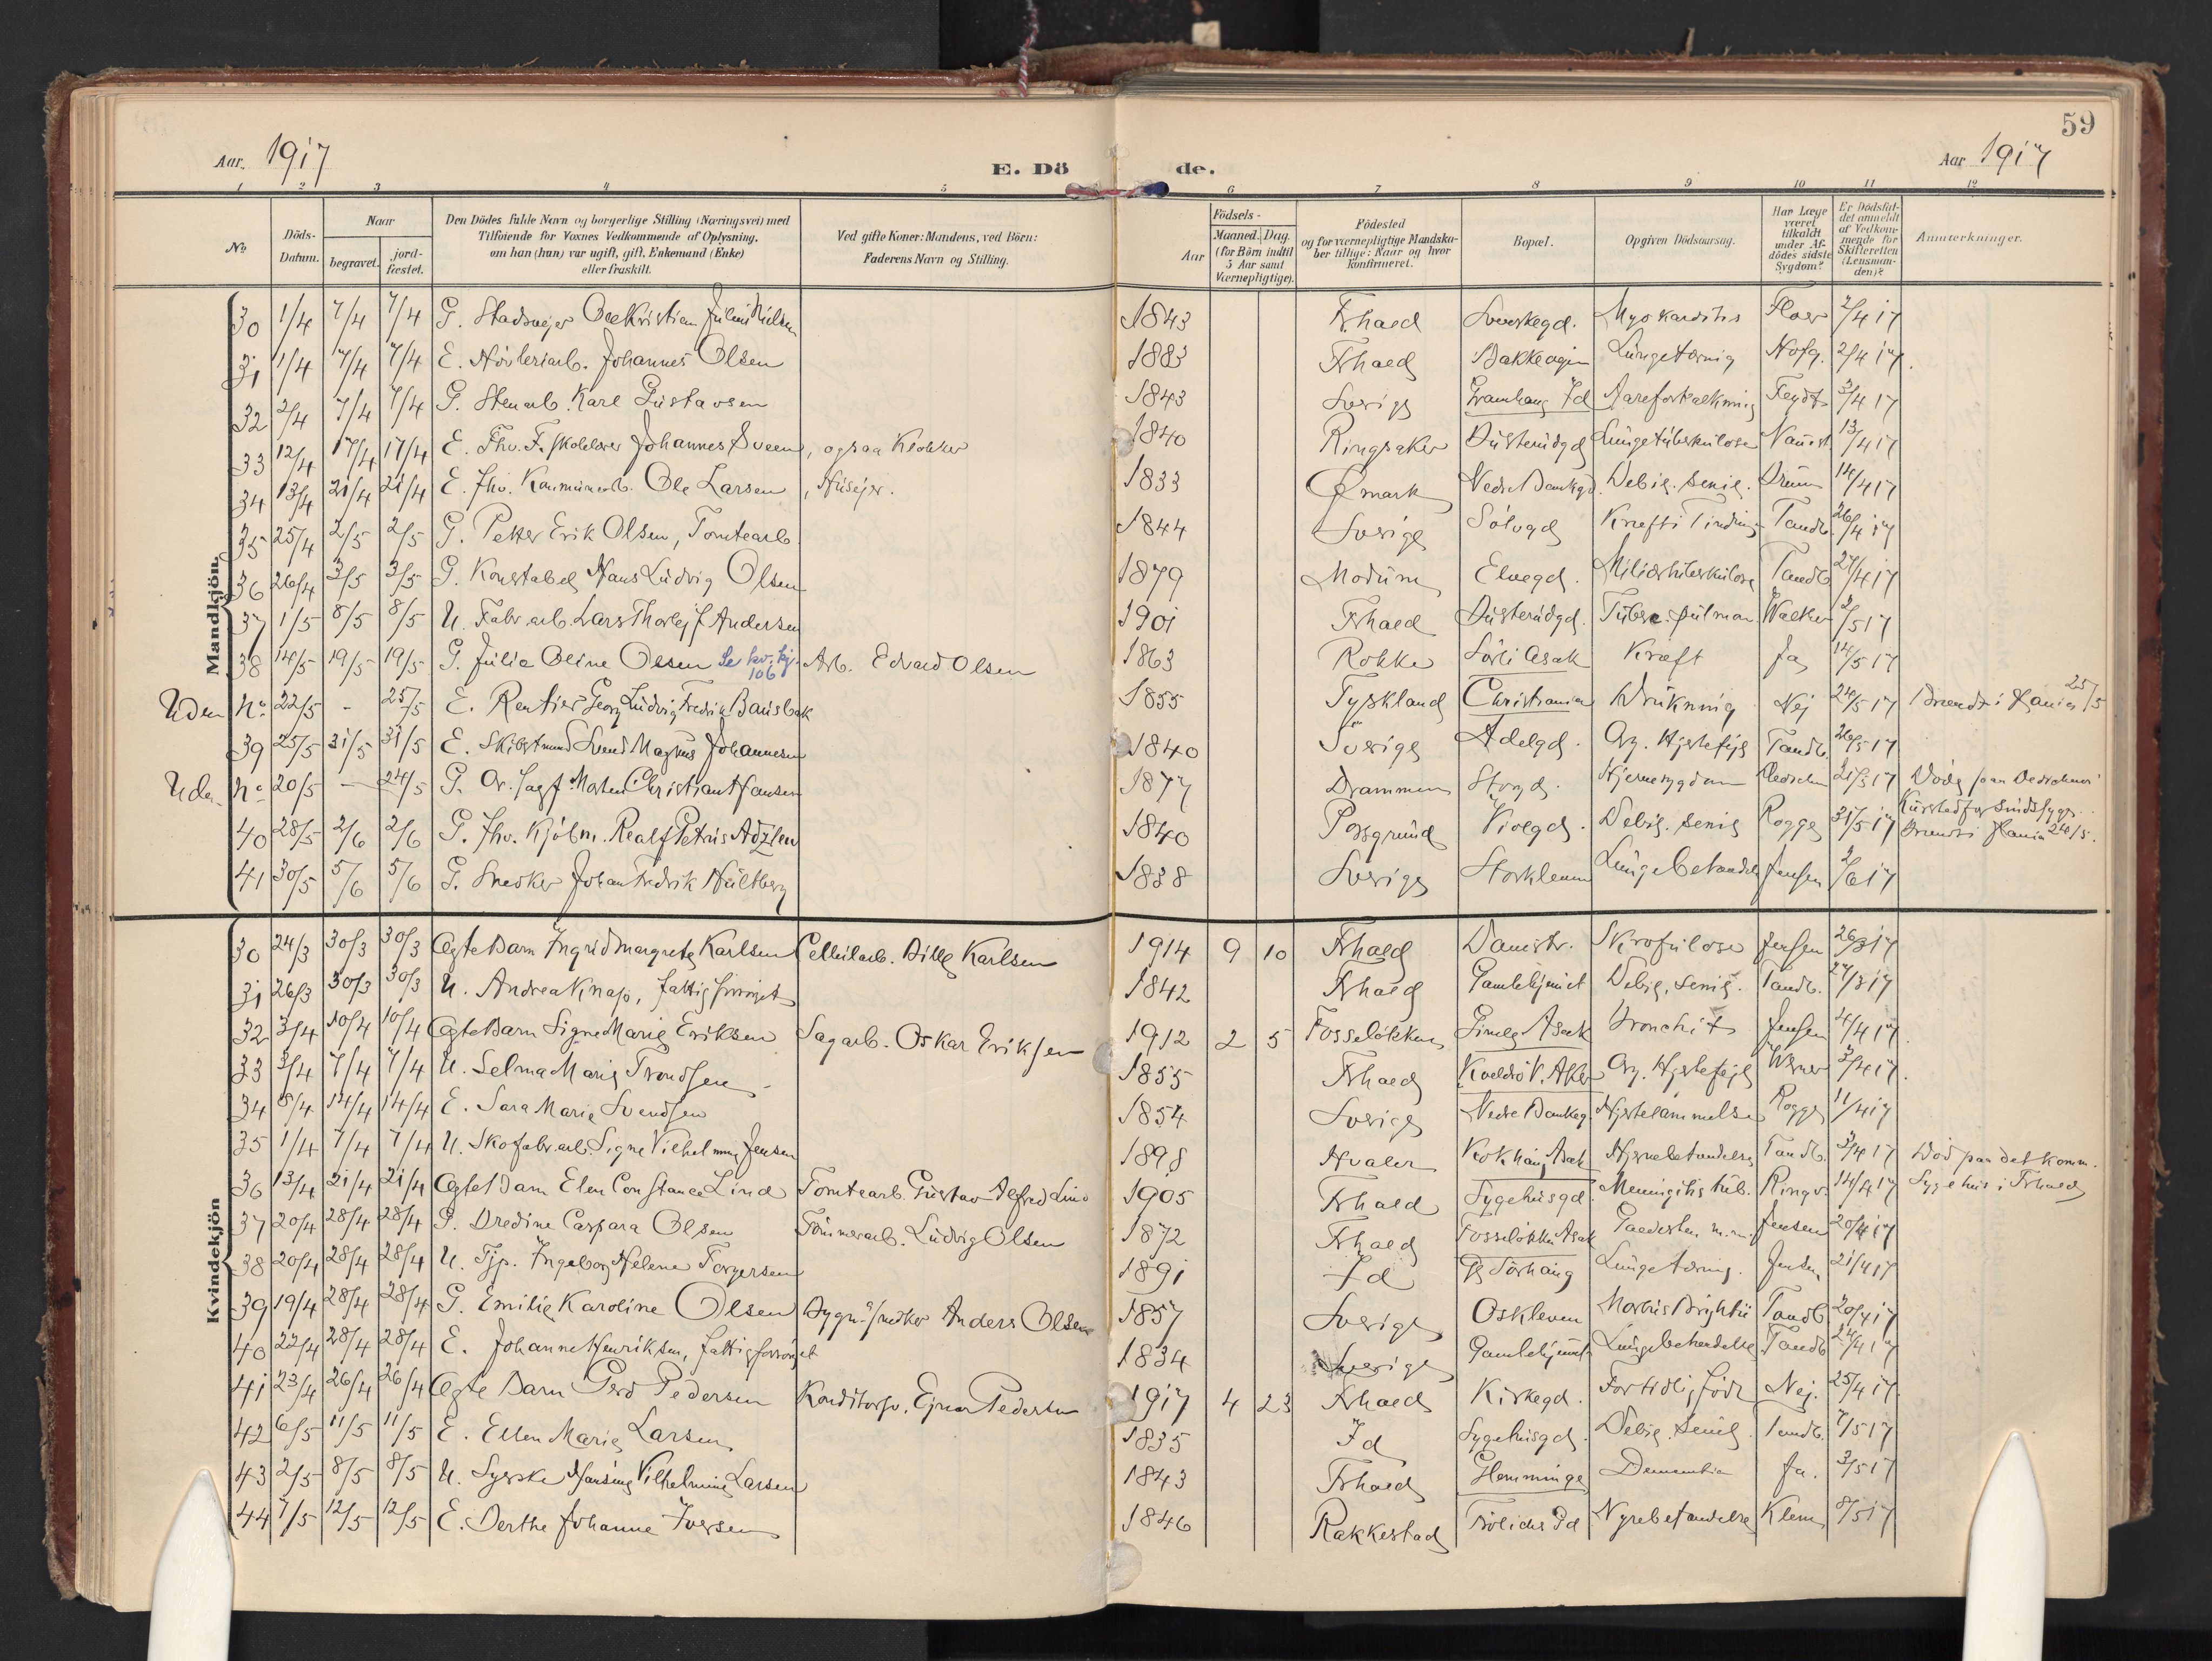 59
Aar. 1917
E. Dö
de.
Aar 1917
1 2 3 4 5 6 7 8 9 10 11 12
No.
Döds-Datum.
Naar
begravet.
jord-fæstet.
Den Dödes fulde Navn og borgerlige Stilling (Næringsvei) med
Tilföiende for Voxnes Vedkommende af Oplysning,
om han (hun) var ugift, gift, Enkemand (Enke)
eller fraskilt.
Ved gifte Koner: Mandens, ved Börn:
Faderens Navn og Stilling.
Födsels-
Aar
Maaned. Dag.
(for Börn indtil
5 Aar samt
Værnepligtige).
Födested
og for værnepligtige Mandska-
ber tillige: Naar og hvor
konfirmeret.
Bopæl.
Opgiven Dödsaarsag.
Har Læge
været
tilkaldt
under Af-
dödes sidste
Sygdom?
Er Dödsfal-
det anmeldt
af Vedkom-
mende for
Skifteretten
(Lensman-
den)?
Anmerkninger.
Mandkjön.
30 1/4 7/4 7/4 G. Ole Kristian Julius Nielsen 1843 Fhald Myokarditis 2/4 17
31 1/4 7/4 7/4 E. Johannes Olsen 1883 Fhald Lungetæring 2/4 17
32 2/4 7/4 7/4 G. Stenarb. Karl Gustavsen 1843 Sverige Id Aareforkalkning 3/4 17
33 12/4 17/4 17/4 E. Fhv. Johannes Sveen, ogsaa Klokker 1840 Ringsaker Lungetuberkulose 13/4 17
34 13/4 21/4 21/4 E. fhv. Ole Larsen, Huseier. 1833 Ømark Debil. senil. 14/4 17
35 25/4 2/5 2/5 G. Petter Erik Olsen, Tomtearb. 1844 Sverige Sölvgd Tandb. 26/4 17
36 26/4 3/5 3/5 G. Konstabel Hans Ludvig Olsen 1879 Modum Elvegd. Miliærtuberkulose Tandb. 27/4 17
37 1/5 8/5 8/5 U. Fabr.arb. Lars Thorleif Andersen 1901 Fhald Tuberc. pulmon. Walker 2/5 17
38 14/5 19/5 19/5 G. Julie Oline Olsen 106 Arb. Edvard Olsen 1863 Rokke Asak Kræft Ja 14/5 17
Uden No. 22/5 - 25/5 E. Rentier Georg Ludvig Fredrik 1855 Tyskland Christiania Drukning Nej 24/5 17 Brændt i Kania 25/5
39 25/5 31/5 31/5 E. Svend Magnus Johannesen 1840 Sverige Adelgd. Org. Hjertefejl Tandb. 26/5 17
Uden No. 20/5 - 24/5 G. Or. sagf. Morten Christian Hansen 1877 Drammen Storgd. Hjernesygdom 21/5 17 Död paa
Kursted for Sindssyge.
Brændt i Kania 24/5.
40 28/5 2/6 2/6 G. fhv. Kjöbm. Realf Petrus 1840 Porsgrund Violgd. Debil. senil. Rogge 31/5 17
41 30/5 5/6 5/6 G. Snedker Johan Fredrik Hultberg 1838 Sverige Lungebetændelse Jensen 2/6 17
Kvindekjön
30 24/3 30/3 30/3 Ægte Barn Ingrid Margrete Karlsen Cellul.arb. Karlsen 1914 9 10 Fhald Damstr. Skrofulose Jensen 26/3 17
31 26/3 30/3 30/3 U. Andrea Knap, fattigforsörget 1842 Fhald Gamlehjemmet Debil. senil. Tandb. 27/3 17
32 3/4 10/4 10/4 Ægte Barn Signe Marie Eriksen Sagarb. Oskar Eriksen 1912 2 5 Fosselökken Asak Bronchit Jensen 4/4 17
33 3/4 7/4 7/4 U. Selma Marie Trondsen 1855 Fhald V. Aker Org. Hjertefejl Werner 3/4 17
34 8/4 14/4 14/4 E. Sara Marie Svendsen 1854 Sverige Nedre Bankegd. Hjertelammelse Rogge 11/4 17
35 1/4 7/4 7/4 U. Skofabr.arb. Signe Vilhelmine Jensen 1898 Hvaler Asak Hjernebetændelse Tandb. 3/4 17 Död paa det komm.
Sygehus i Fhald
36 13/4 21/4 21/4 Ægte Barn Elen Constance Lind Tomtearb. Gustav Alfred Lind 1905 Fhald Sygehusgd. Meningitis tub. Ringv. 14/4 17
37 20/4 28/4 28/4 G. Caspara Olsen Tömmerarb. Ludvig Olsen 1872 Fhald Fosselökken Asak Jensen 20/4 17
38 20/4 28/4 28/4 U. Tjp. Ingeborg Helene Torgersen 1891 Id Lungetæring. Jensen 21/4 17
39 19/4 28/4 28/4 G. Emilie Karoline Olsen Bygn.snedker Anders Olsen 1857 Sverige Oskleven Morbus Brightii Tandb. 20/4 17
40 22/4 28/4 28/4 E. Johanne Henriksen, fattigforsörget 1834 Sverige Gamlehjemmet Lungebetændelse Tandb. 24/4 17
41 23/4 26/4 26/4 Ægte Barn Gerd Pedersen Konditorsv. Ejnar Pedersen 1917 4 23 Fhald Kirkegd. Fortidlig född Nej. 25/4 17
42 6/5 11/5 11/5 E. Ellen Marie Larsen 1835 Id Sygehusgd. Debil. senil. Tandb. 7/5 17
43 2/5 8/5 8/5 U. Syerske Hansine Vilhelmine Larsen 1843 Fhald Glemminge Dementia Ja. 3/5 17
44 7/5 12/5 12/5 E. Berthe Johanne Iversen 1846 Rakkestad Id Nyrebetændelse Klem 8/5 17